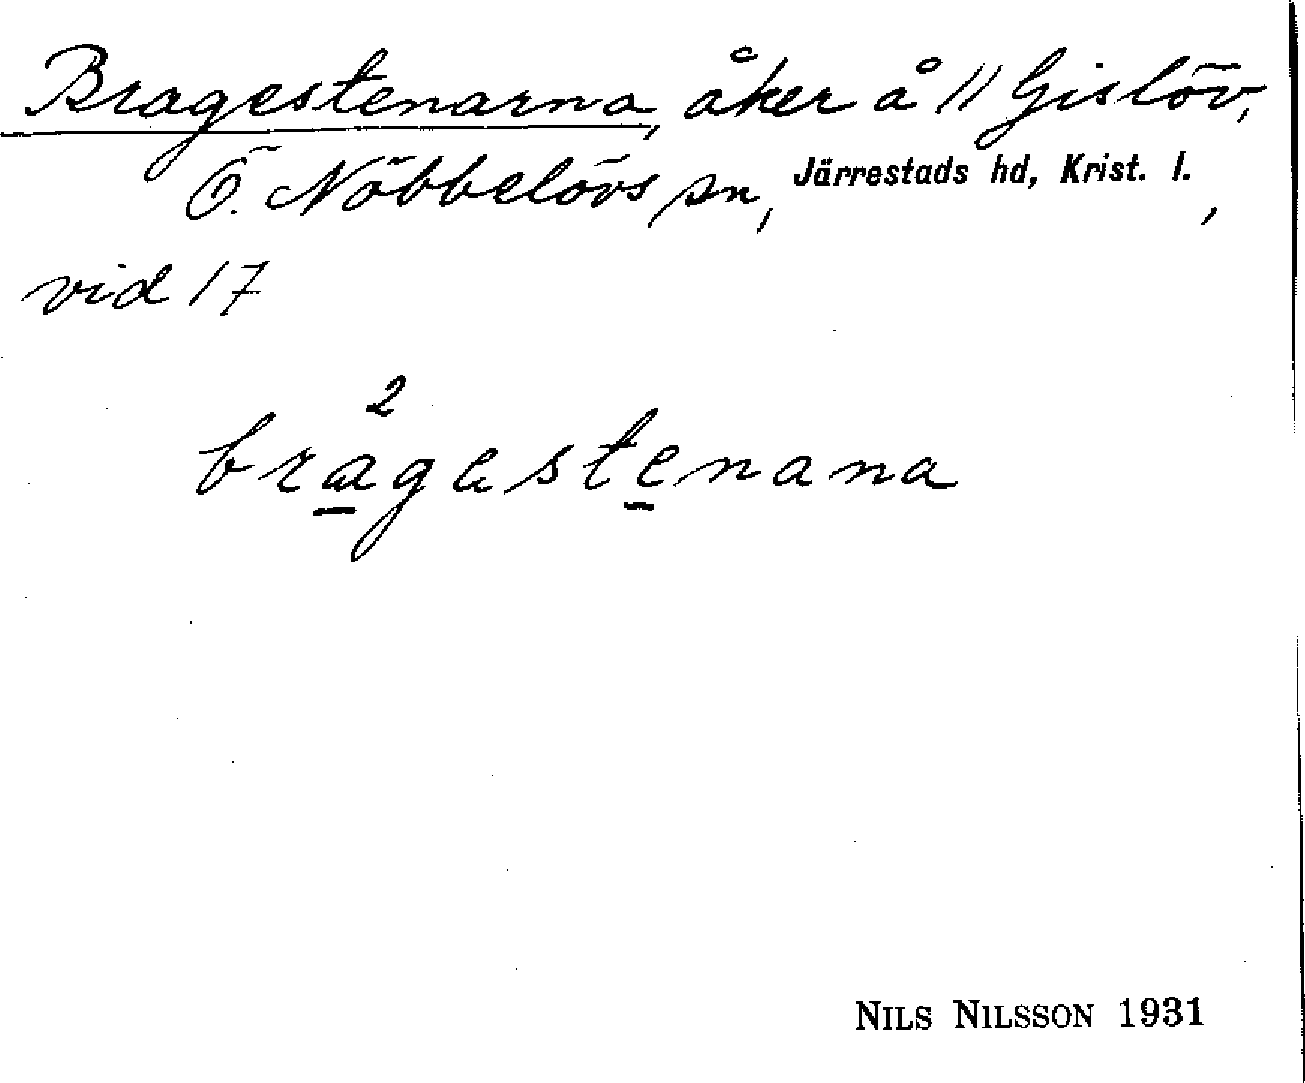 Bragestenarna, åker å 11 Gislöv,
Ö. Nöbbelövs sn, Järrestads hd, Krist. l.,
vid 17
2
bragestenana
NILS NILSSON 1931